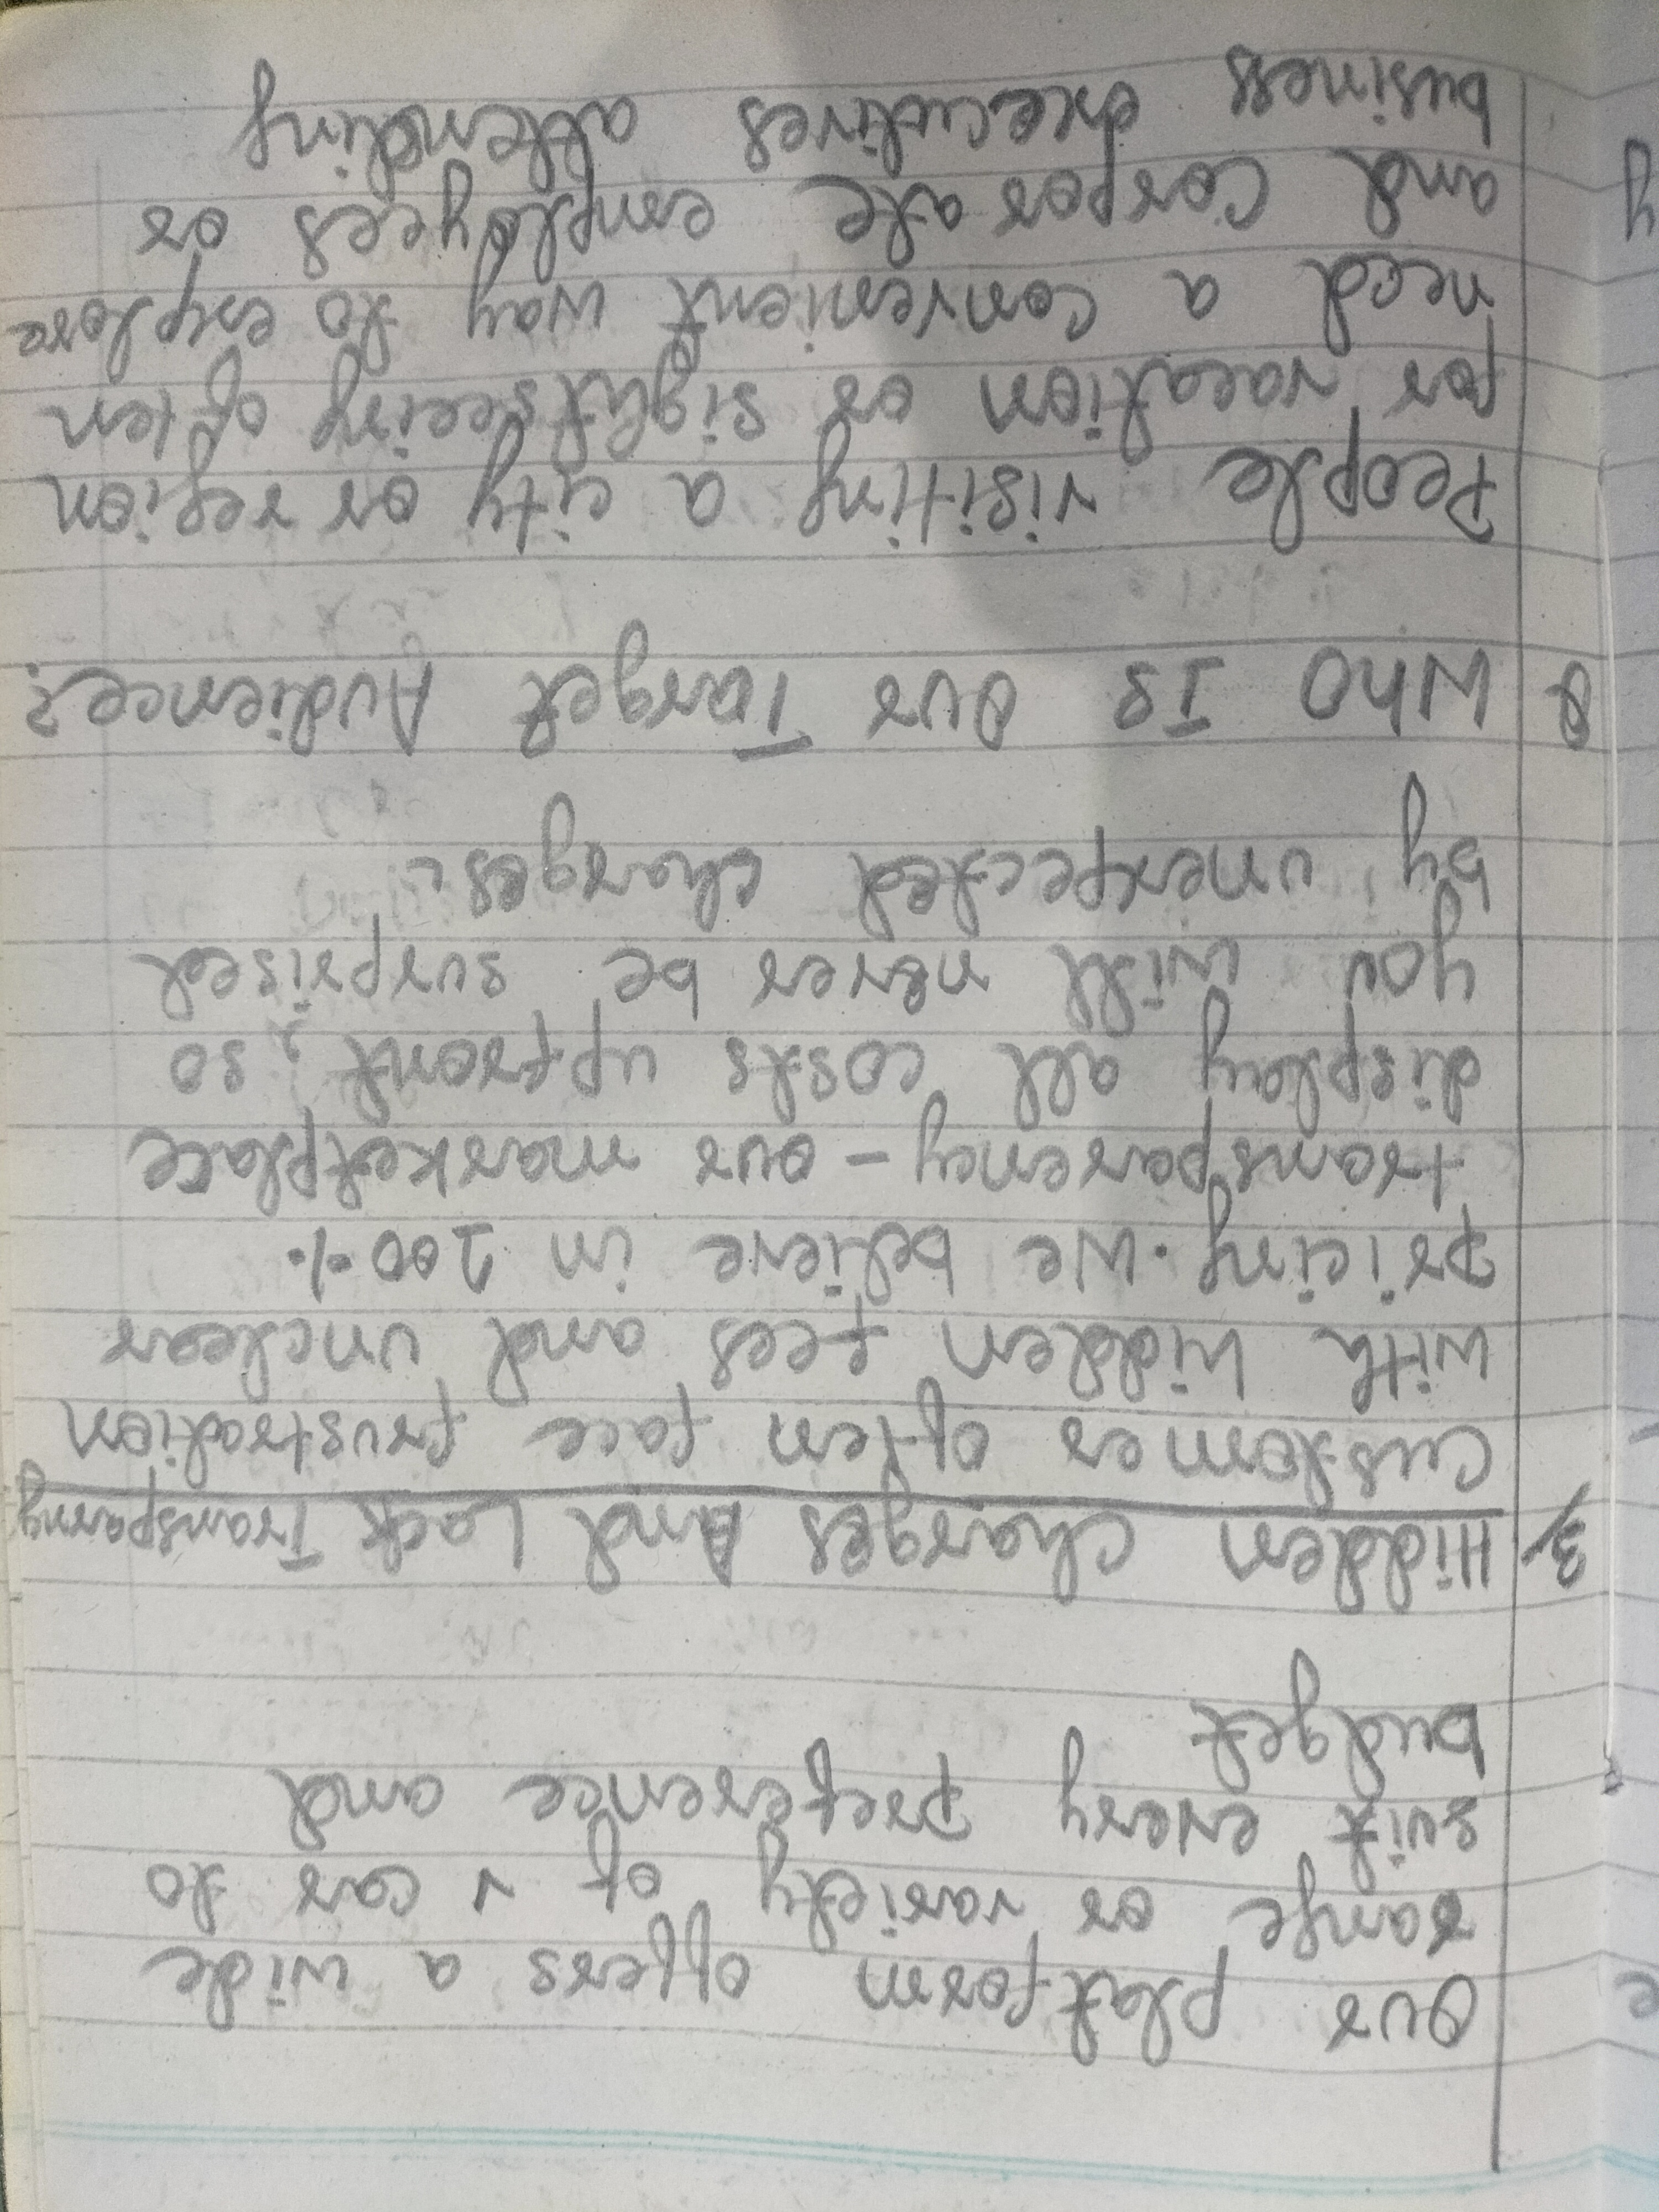 Our platform offers a wide
range or variety of v car to
suit every preference and
budget
3/ Hidden Charges And Lack Transparny
Customer often face frustration
with hidden fees and unclear
pricing. We believe in 100%
transparency - our marketplace
display all costs upfront, so
you will never be surprised
by unexpected charges.
Q Who Is Our Target Audience?
People visiting a city or region
for vacation or sightseeing often
need a convenient way to explore
and Corporate employees or
business executives attending